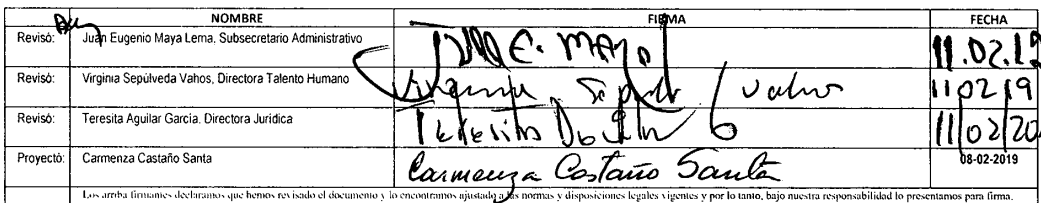 NOMBRE FIRMA FECHA
Revisó: Juan Eugenio Maya Lema. Subsecretario Administrativo 11.02.19
Revisó: Virginia Sepúlveda Vahos, Directora Talento Humano 11 02 19
Revisó: Teresita Aguilar García. Directora Jurídica Teresita 11/02/20
Proyectó: Carmenza Castaño Santa Carmenza Castaño Santa 08-02-2019
Los arriba firmantes declaramos que hemos revisado el documento y lo encontramos ajustado a las normas y disposiciones legales vigentes y por lo tanto, bajo nuestra responsabilidad lo presentamos para firma.